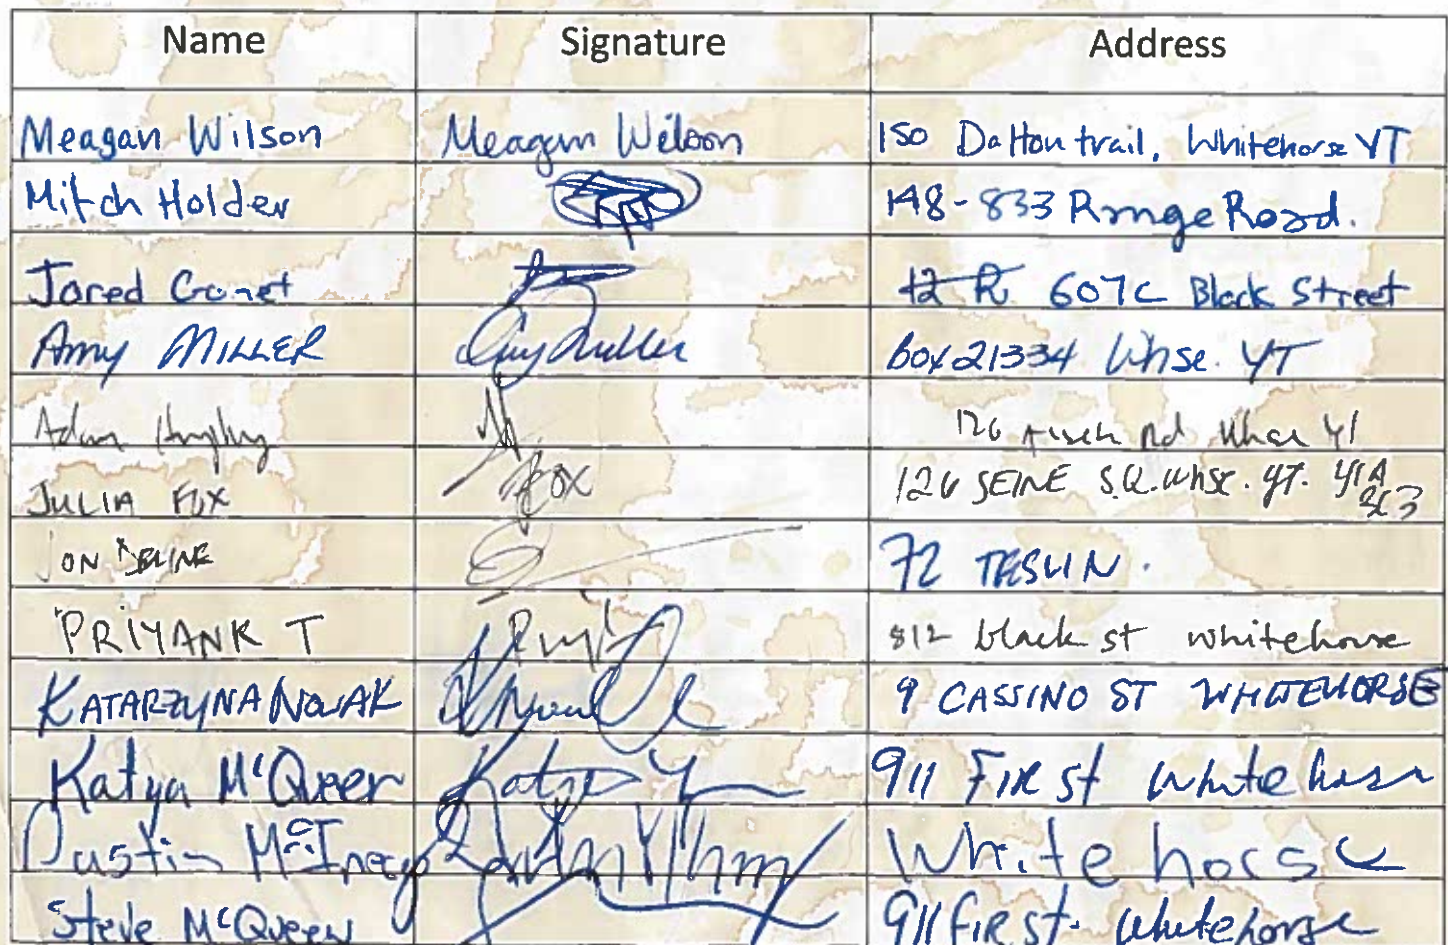 Name Signature Address
Meagan Wilson Meagan Wilson 150 Dalton trail, Whitehorse YT
Mitch Holder 148-833 Range Road.
Jared Gonet 607C Black Street
Amy MILLER Amy Miller Box 21334 Whse. YT
Adam 126 Rd Whse YT
JULIA FOX Fox 126 SEINE SQ. Whse. YT. Y1A
JON 72 TESLIN.
PRIYANK T 812 black st whitehorse
KATARZYNA NOWAK 9 CASSINO ST WHITEHORSE
Katya McQueen Katya 911 FIRSt Whitehorse
Dustin Whitehorse
Steve McQueen 911 FIRSt. Whitehorse